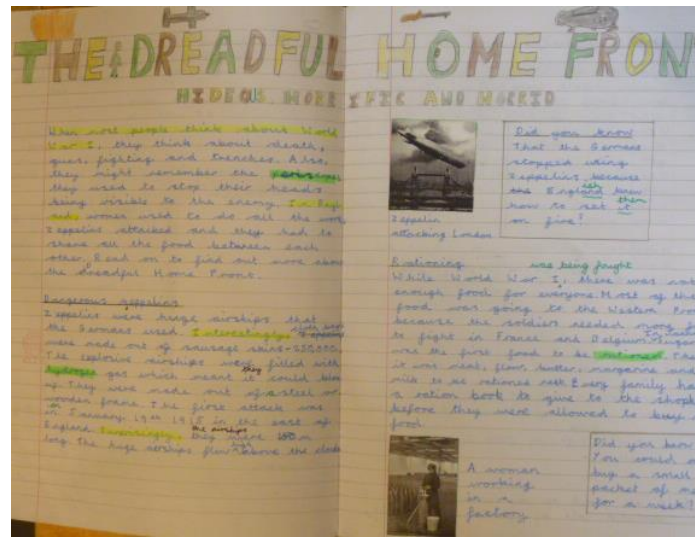 THE DREADFUL HOME FRON
HIDEOUS, HORRIFIC AND HORRID
When most people think about World
War I, they think about death,
guns, fighting and trenches. Also,
they might remember the periscopes
they used to stop their heads
being visible to the enemy. In
women used to do all the work,
Zeppelins attacked and they had to
share all the food between each
other. Read on to find out more about
the dreadful Home Front.
Dangerous zeppelins
Zeppelins were huge airships that
the Germans used. Interestingly,
were made out of sausage skins - 250,000.
The explosive airships were filled with
hydrogen gas which meant they it could blow
up. They were made out of a steel or
wooden frame. The first attack was
on January 19th 1915 in the east of
England. Surprisingly, the airships they were
long. The huge airships flew high above the clouds
Zeppelin
attacking London
Did you know
That the Germans
stopped using
Zeppelins because
the English knew
how to set them it
on fire?
Rationing
While World War I, was being fought there was not
enough food for everyone. Most of the
food was going to the Western Fron
because the soldiers needed
to fight in France and Belgium. Sugar
was the first food to be rationed. The
it was meat, flour, butter, margarine and
milk to be rationed next. Every family ha
a ration book to give to the shopk
before they were allowed to buy
food.
A woman
working
in a
factory
Did you know
You could o
buy a small
packet of me
for a week?